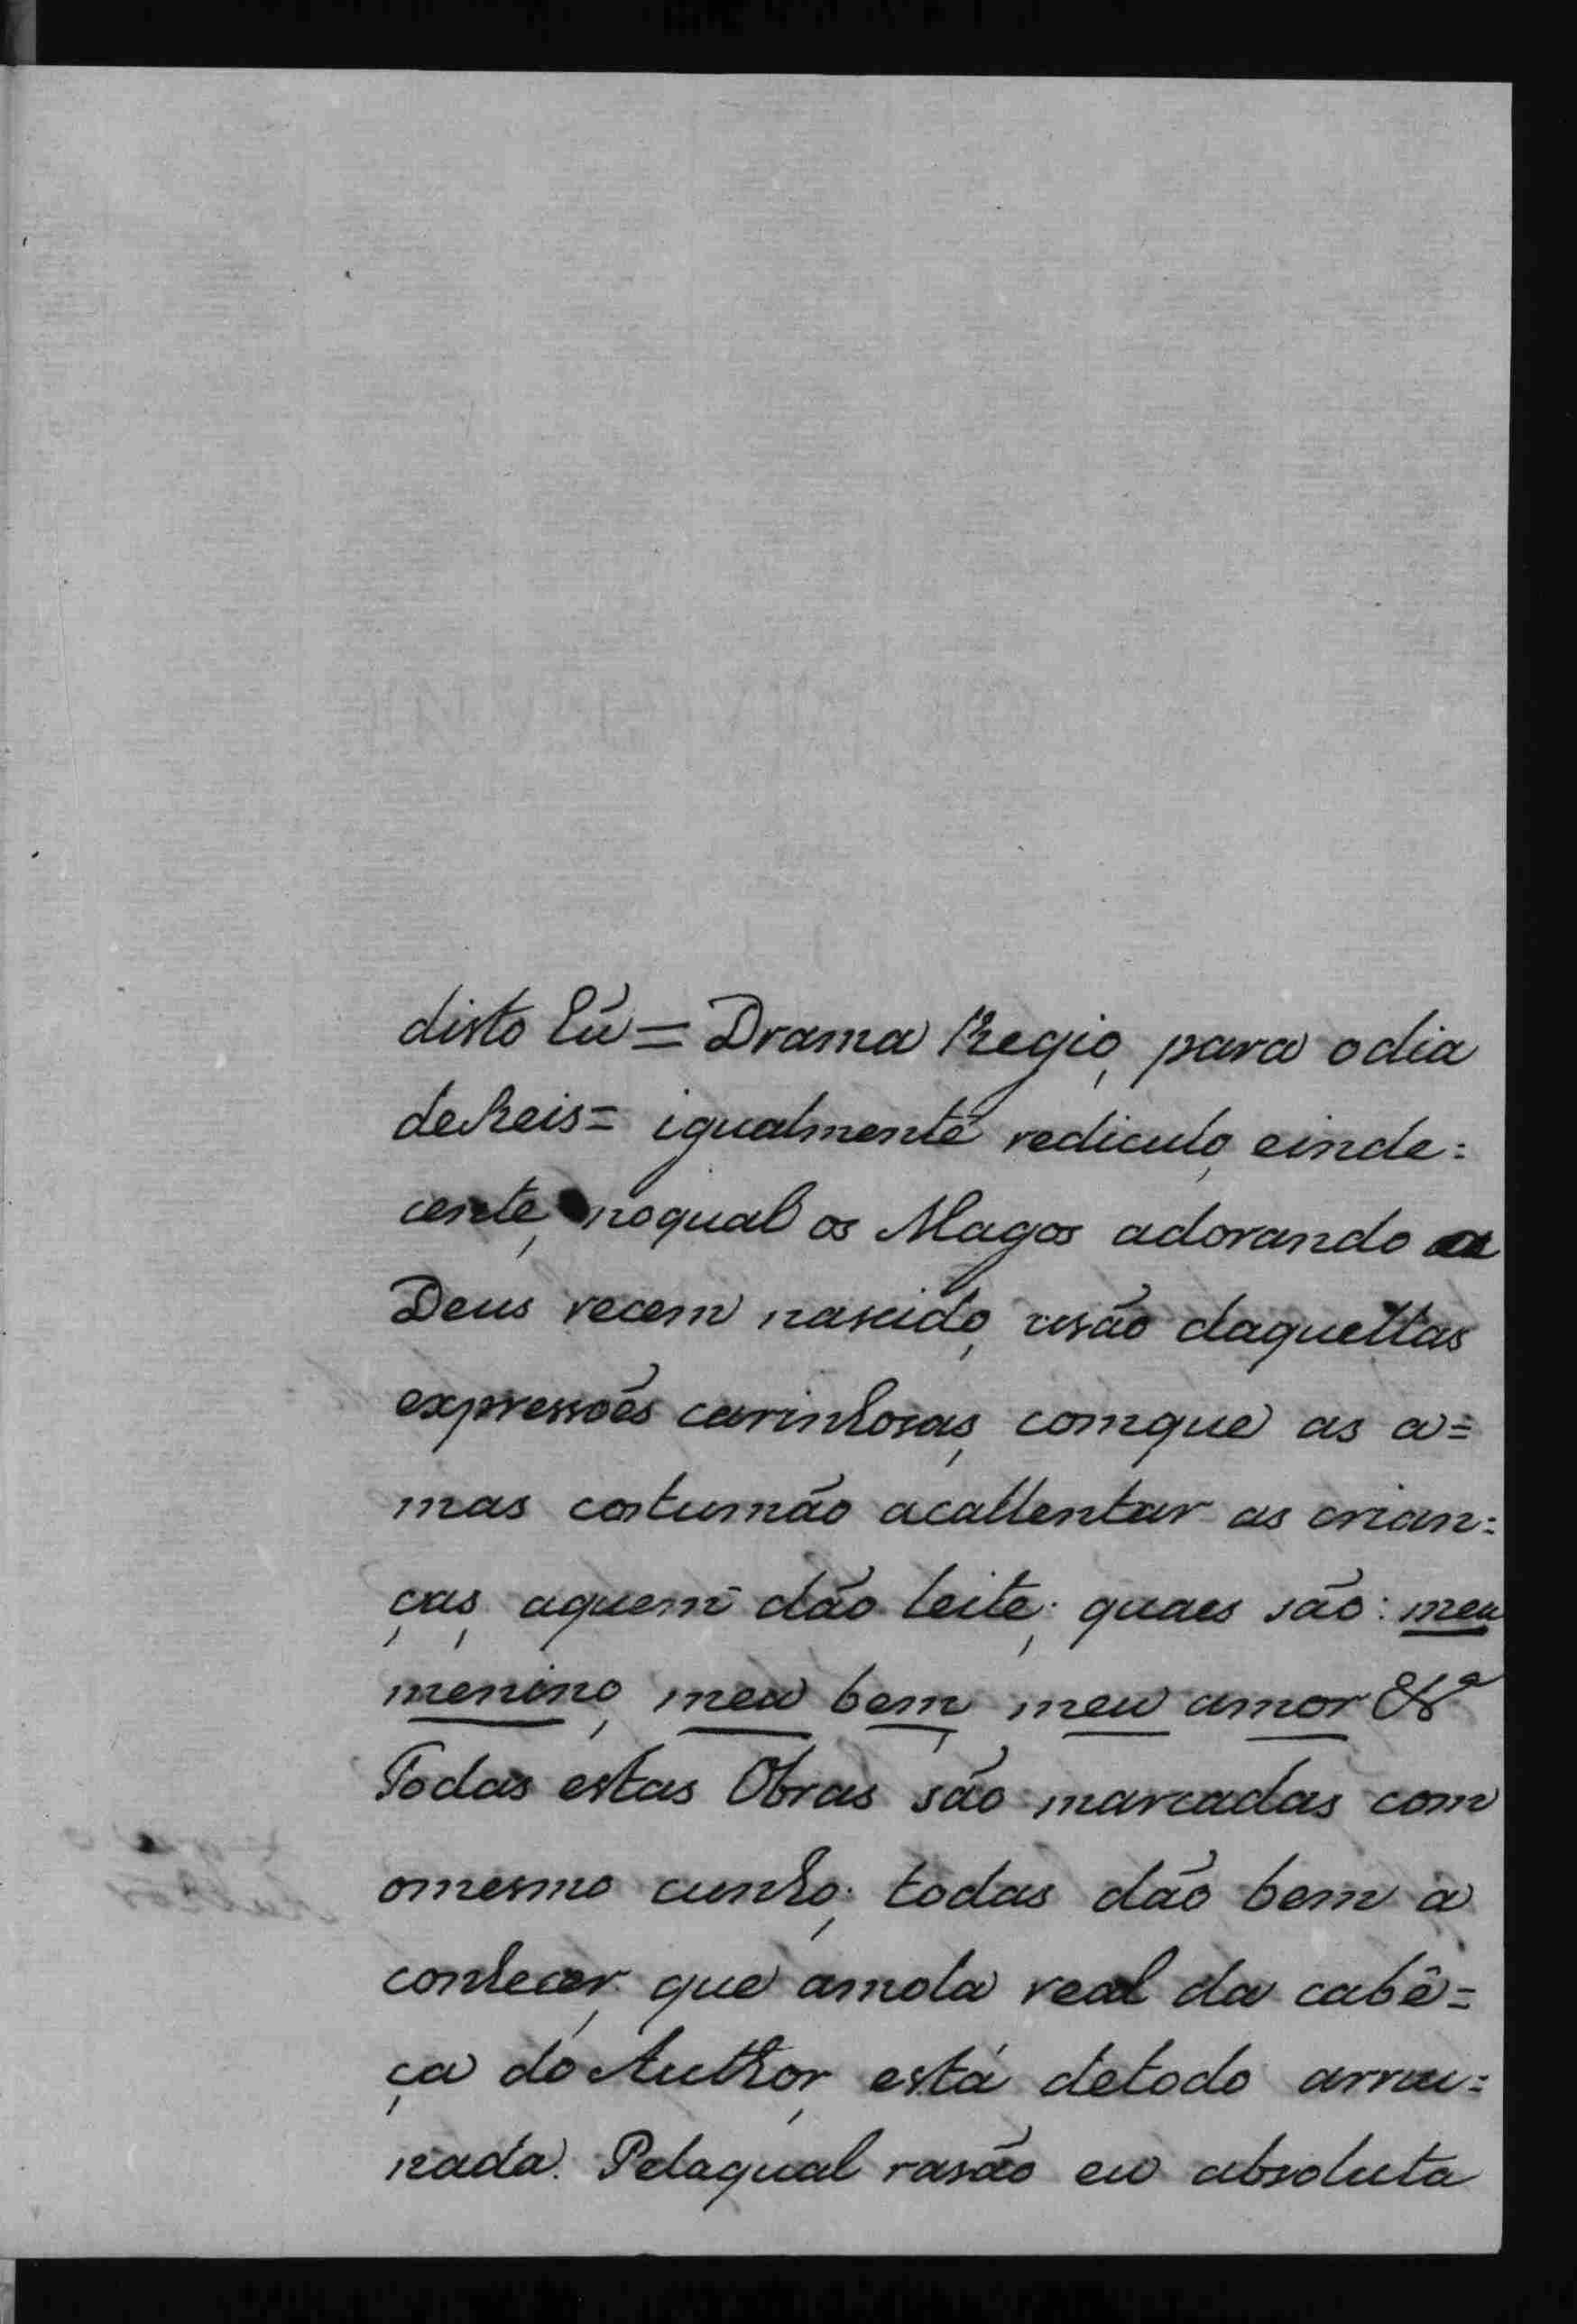 disto Eú = Drama Regio, para odia
deReis = igualmente rediculo, einde=
cente, noqual os Magos adorando a
Deus recem nascido, usão daquellas
expressoẽs carinhosas, comque as a=
mas costumão acallentar as crian=
ças, aquem dão leite; quaes são: meu
menino, meu bem, meu amor &ª
Todas estas Obras são marcadas com
omesmo cunho; todas dão bem a
conhecer, que amola real da cabê=
ça do Author, está detodo arrui=
nada. Pelaqual rasão eu absoluta